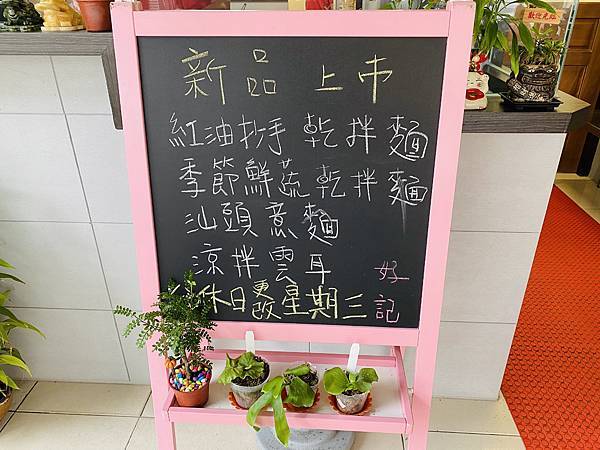 歡迎光臨
新品上市
紅油抄手 乾拌麵
季節鮮蔬乾拌麵
汕頭意麵
涼拌雲耳
休日更改星期三
好記